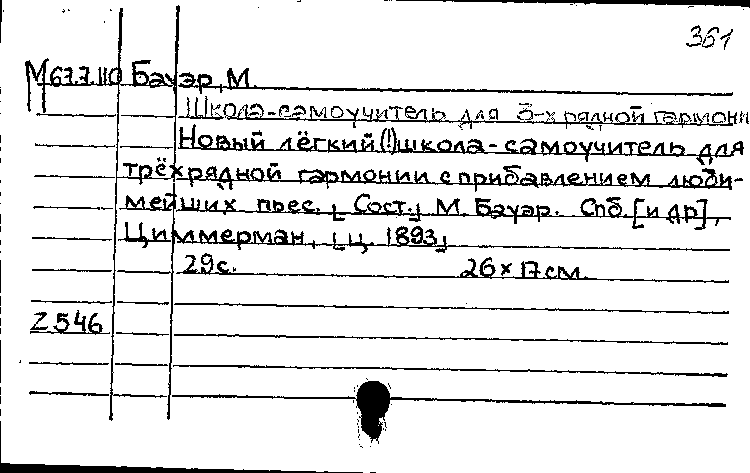 361
М 67.7.110 Бауэр, М.
Школа-самоучитель для 3-х рядной гармони
Новый лёгкий (!) школа-самоучитель для
трёхрядной гармонии с прибавлением люби-
мейших пьес. [Сост.] М. Бауэр. Спб. [и др],
Циммерман, [ц. 1893]
29с. 26×17см.
Z 546